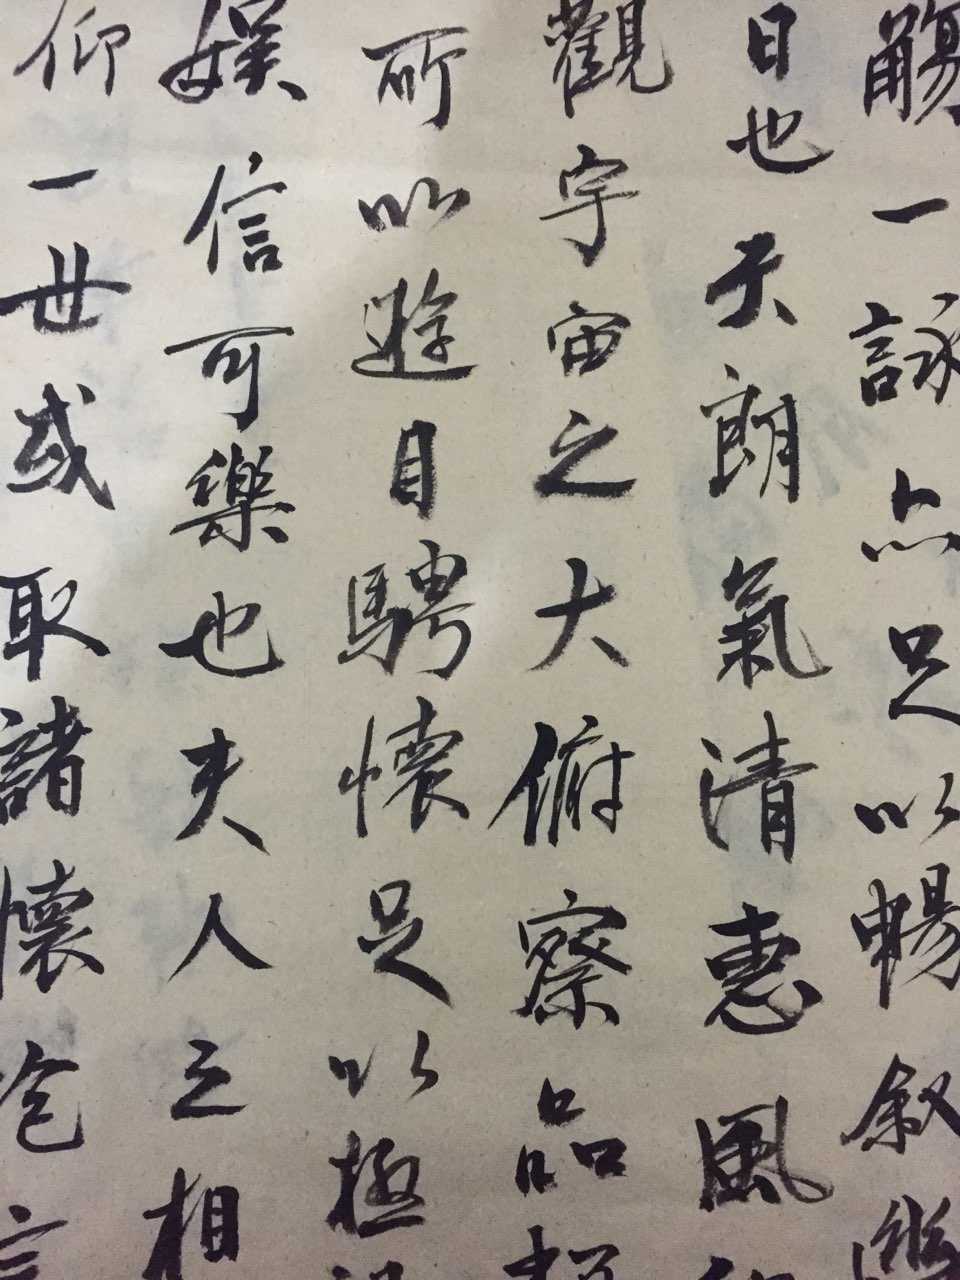 觴一詠亦足以暢叙幽
日也天朗氣清惠風和
觀宇宙之大俯察品類
所以遊目騁懷足以極視
娛信可樂也夫人之相
仰一世或取諸懷抱言